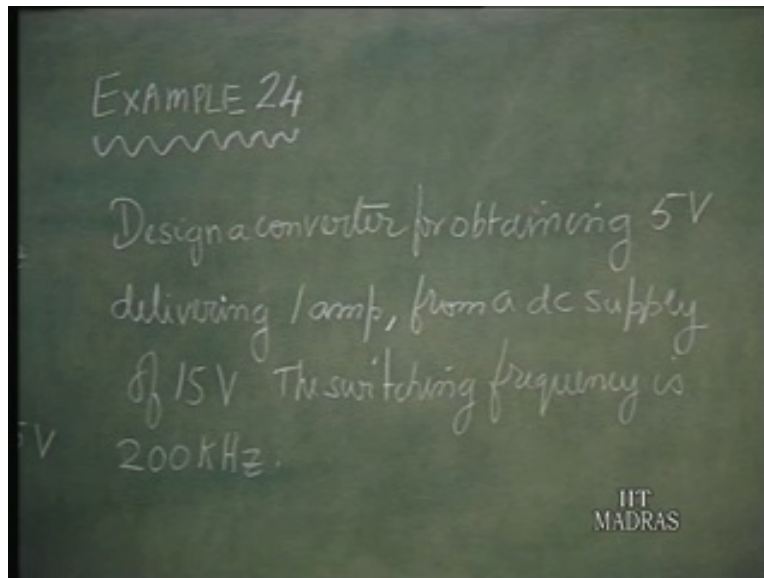 EXAMPLE 24
Design a converter for obtaining 5V
delivering 1 amp, from a dc supply
of 15V The switching frequency is
5V 200KHz.
IIT
MADRAS